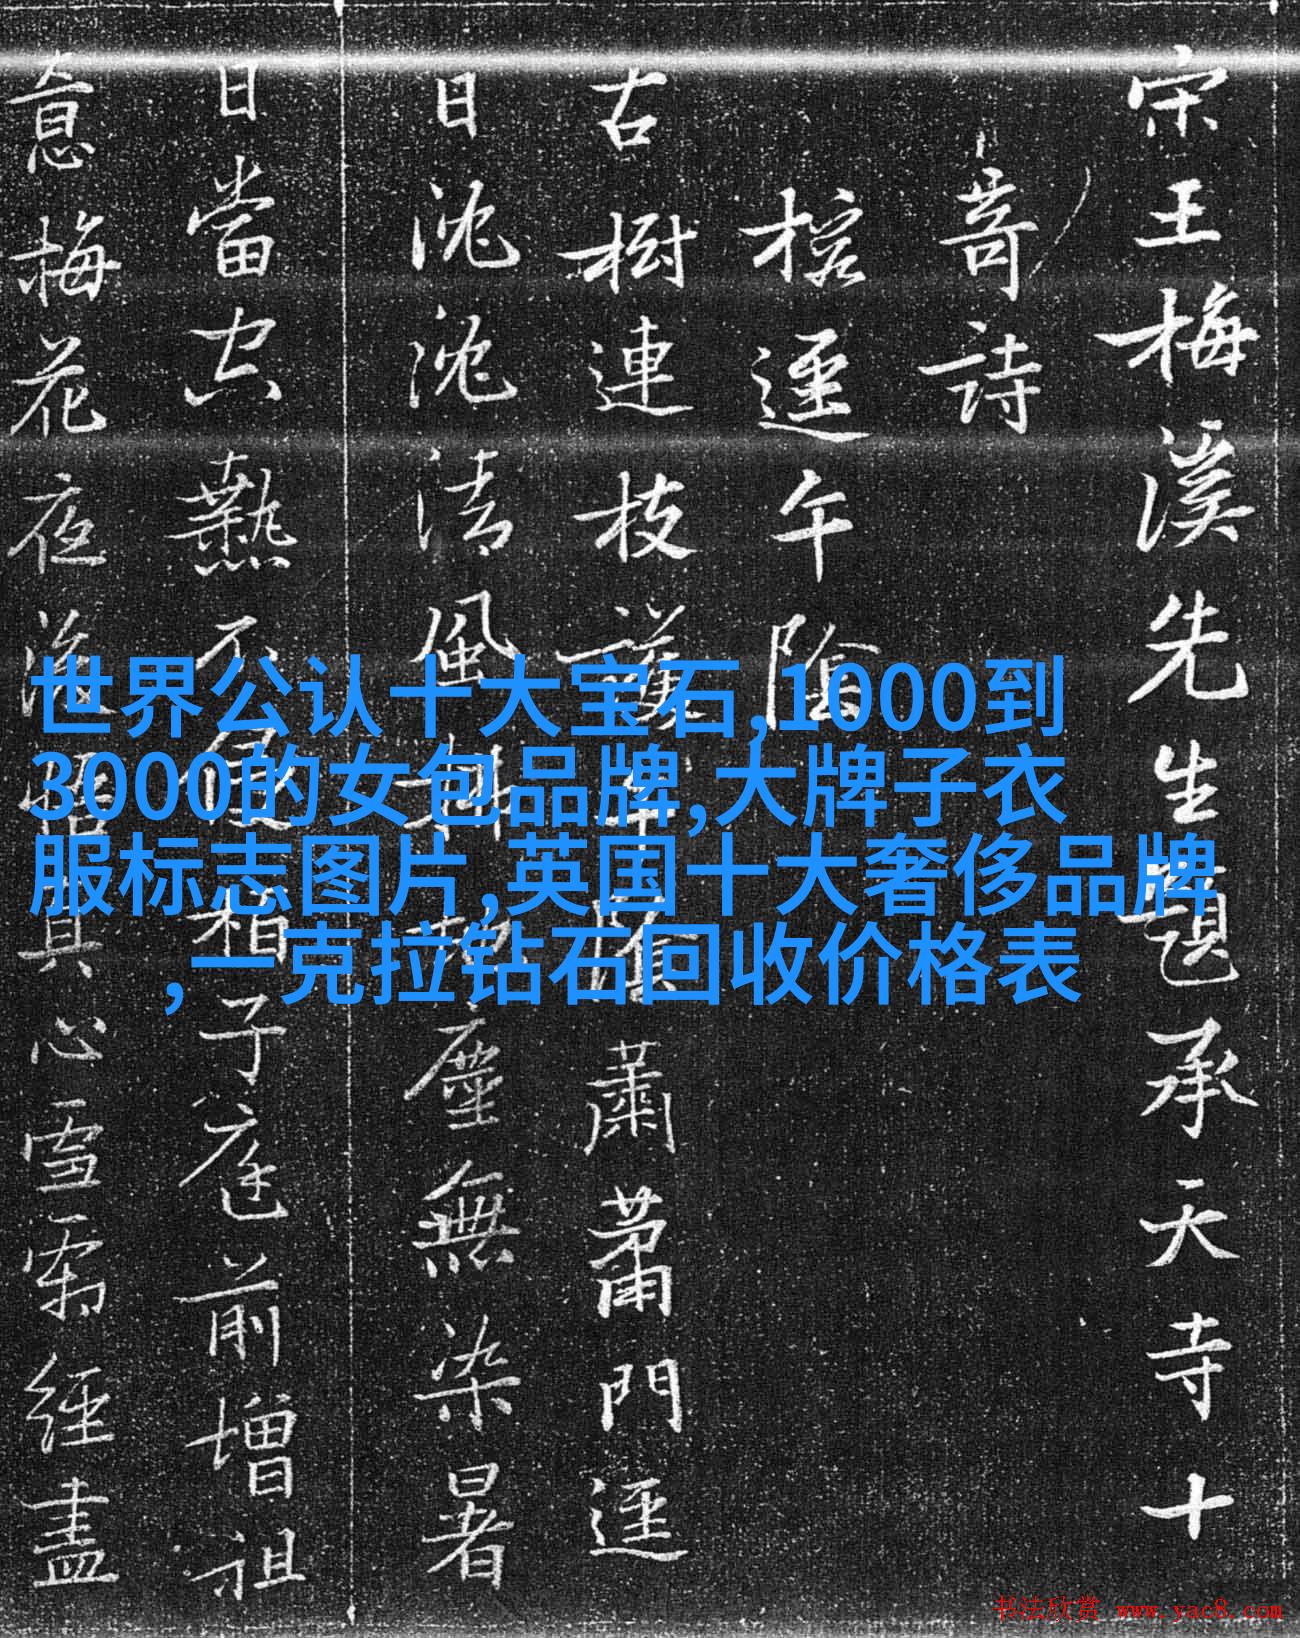 宋王梅溪先生題承天寺十
奇詩
榕逕午陰
古樹連枝護陰蕭蕭門逕
日沈沈清風塵無染暑
日當空熱不侵相子庭前增祖
意梅花夜其心雪霜經盡
世界公认十大宝石,1000到
3000的女包品牌,大牌子衣
服标志图片,英国十大奢侈品牌
,一克拉钻石回收价格表
书法欣赏 www.yac8.com